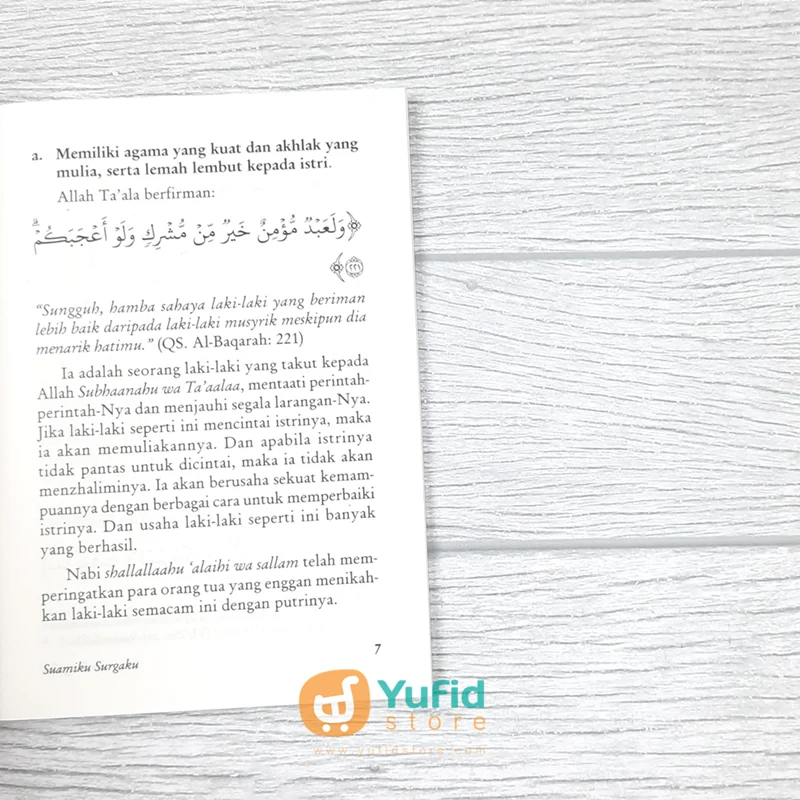 a. Memiliki agama yang kuat dan akhlak yang
mulia, serta lemah lembut kepada istri.
Allah Ta'ala berfirman:
﴿وَلَعَبْدٌ مُّؤْمِنٌ خَيْرٌ مِّنْ مُّشْرِكٍ وَلَوْ أَعْجَبَكُمْ ۗ
٢٢١﴾
"Sungguh, hamba sahaya laki-laki yang beriman
lebih baik daripada laki-laki musyrik meskipun dia
menarik hatimu." (QS. Al-Baqarah: 221)
Ia adalah seorang laki-laki yang takut kepada
Allah Subhaanahu wa Ta'aalaa, mentaati perintah-
perintah-Nya dan menjauhi segala larangan-Nya.
Jika laki-laki seperti ini mencintai istrinya, maka
ia akan memuliakannya. Dan apabila istrinya
tidak pantas untuk dicintai, maka ia tidak akan
menzhaliminya. Ia akan berusaha sekuat kemam-
puannya dengan berbagai cara untuk memperbaiki
istrinya. Dan usaha laki-laki seperti ini banyak
yang berhasil.
Nabi shallallaahu 'alaihi wa sallam telah mem-
peringatkan para orang tua yang enggan menikah-
kan laki-laki semacam ini dengan putrinya.
7
Suamiku Surgaku
Yufid
store
www.yufidstore.com